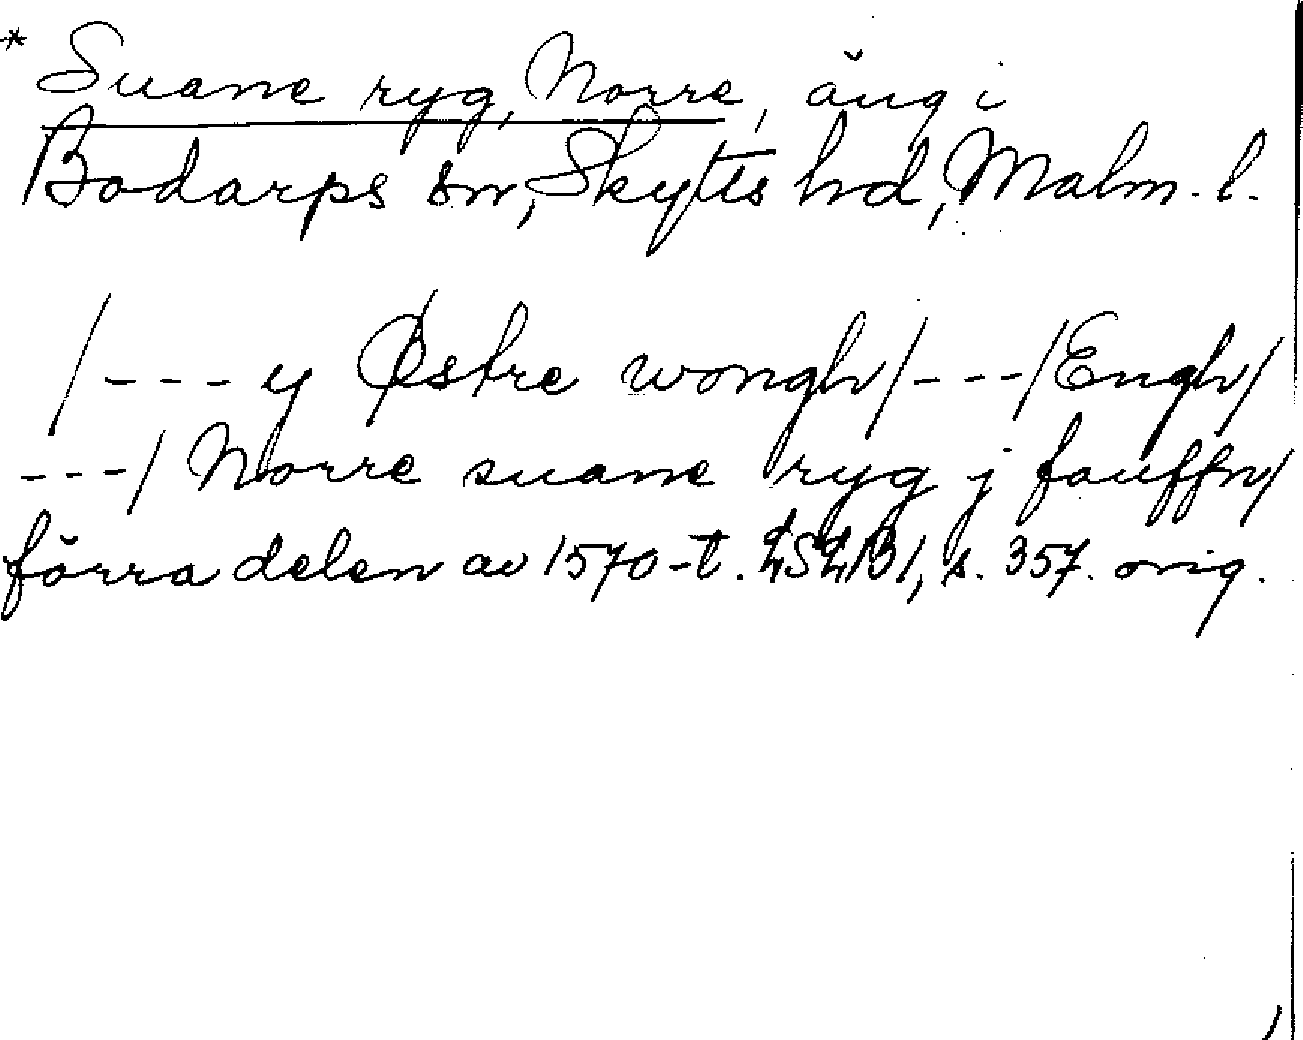 * Suane ryg, Norre, äng i
Bodarps sn, Skytts hd, Malm. l.
/ - - - y Østre wongh / - - - / Engh /
- - - / Norre suane ryg j fauffn /
förra delen av 1570-t. LSLB1, s. 357. orig.